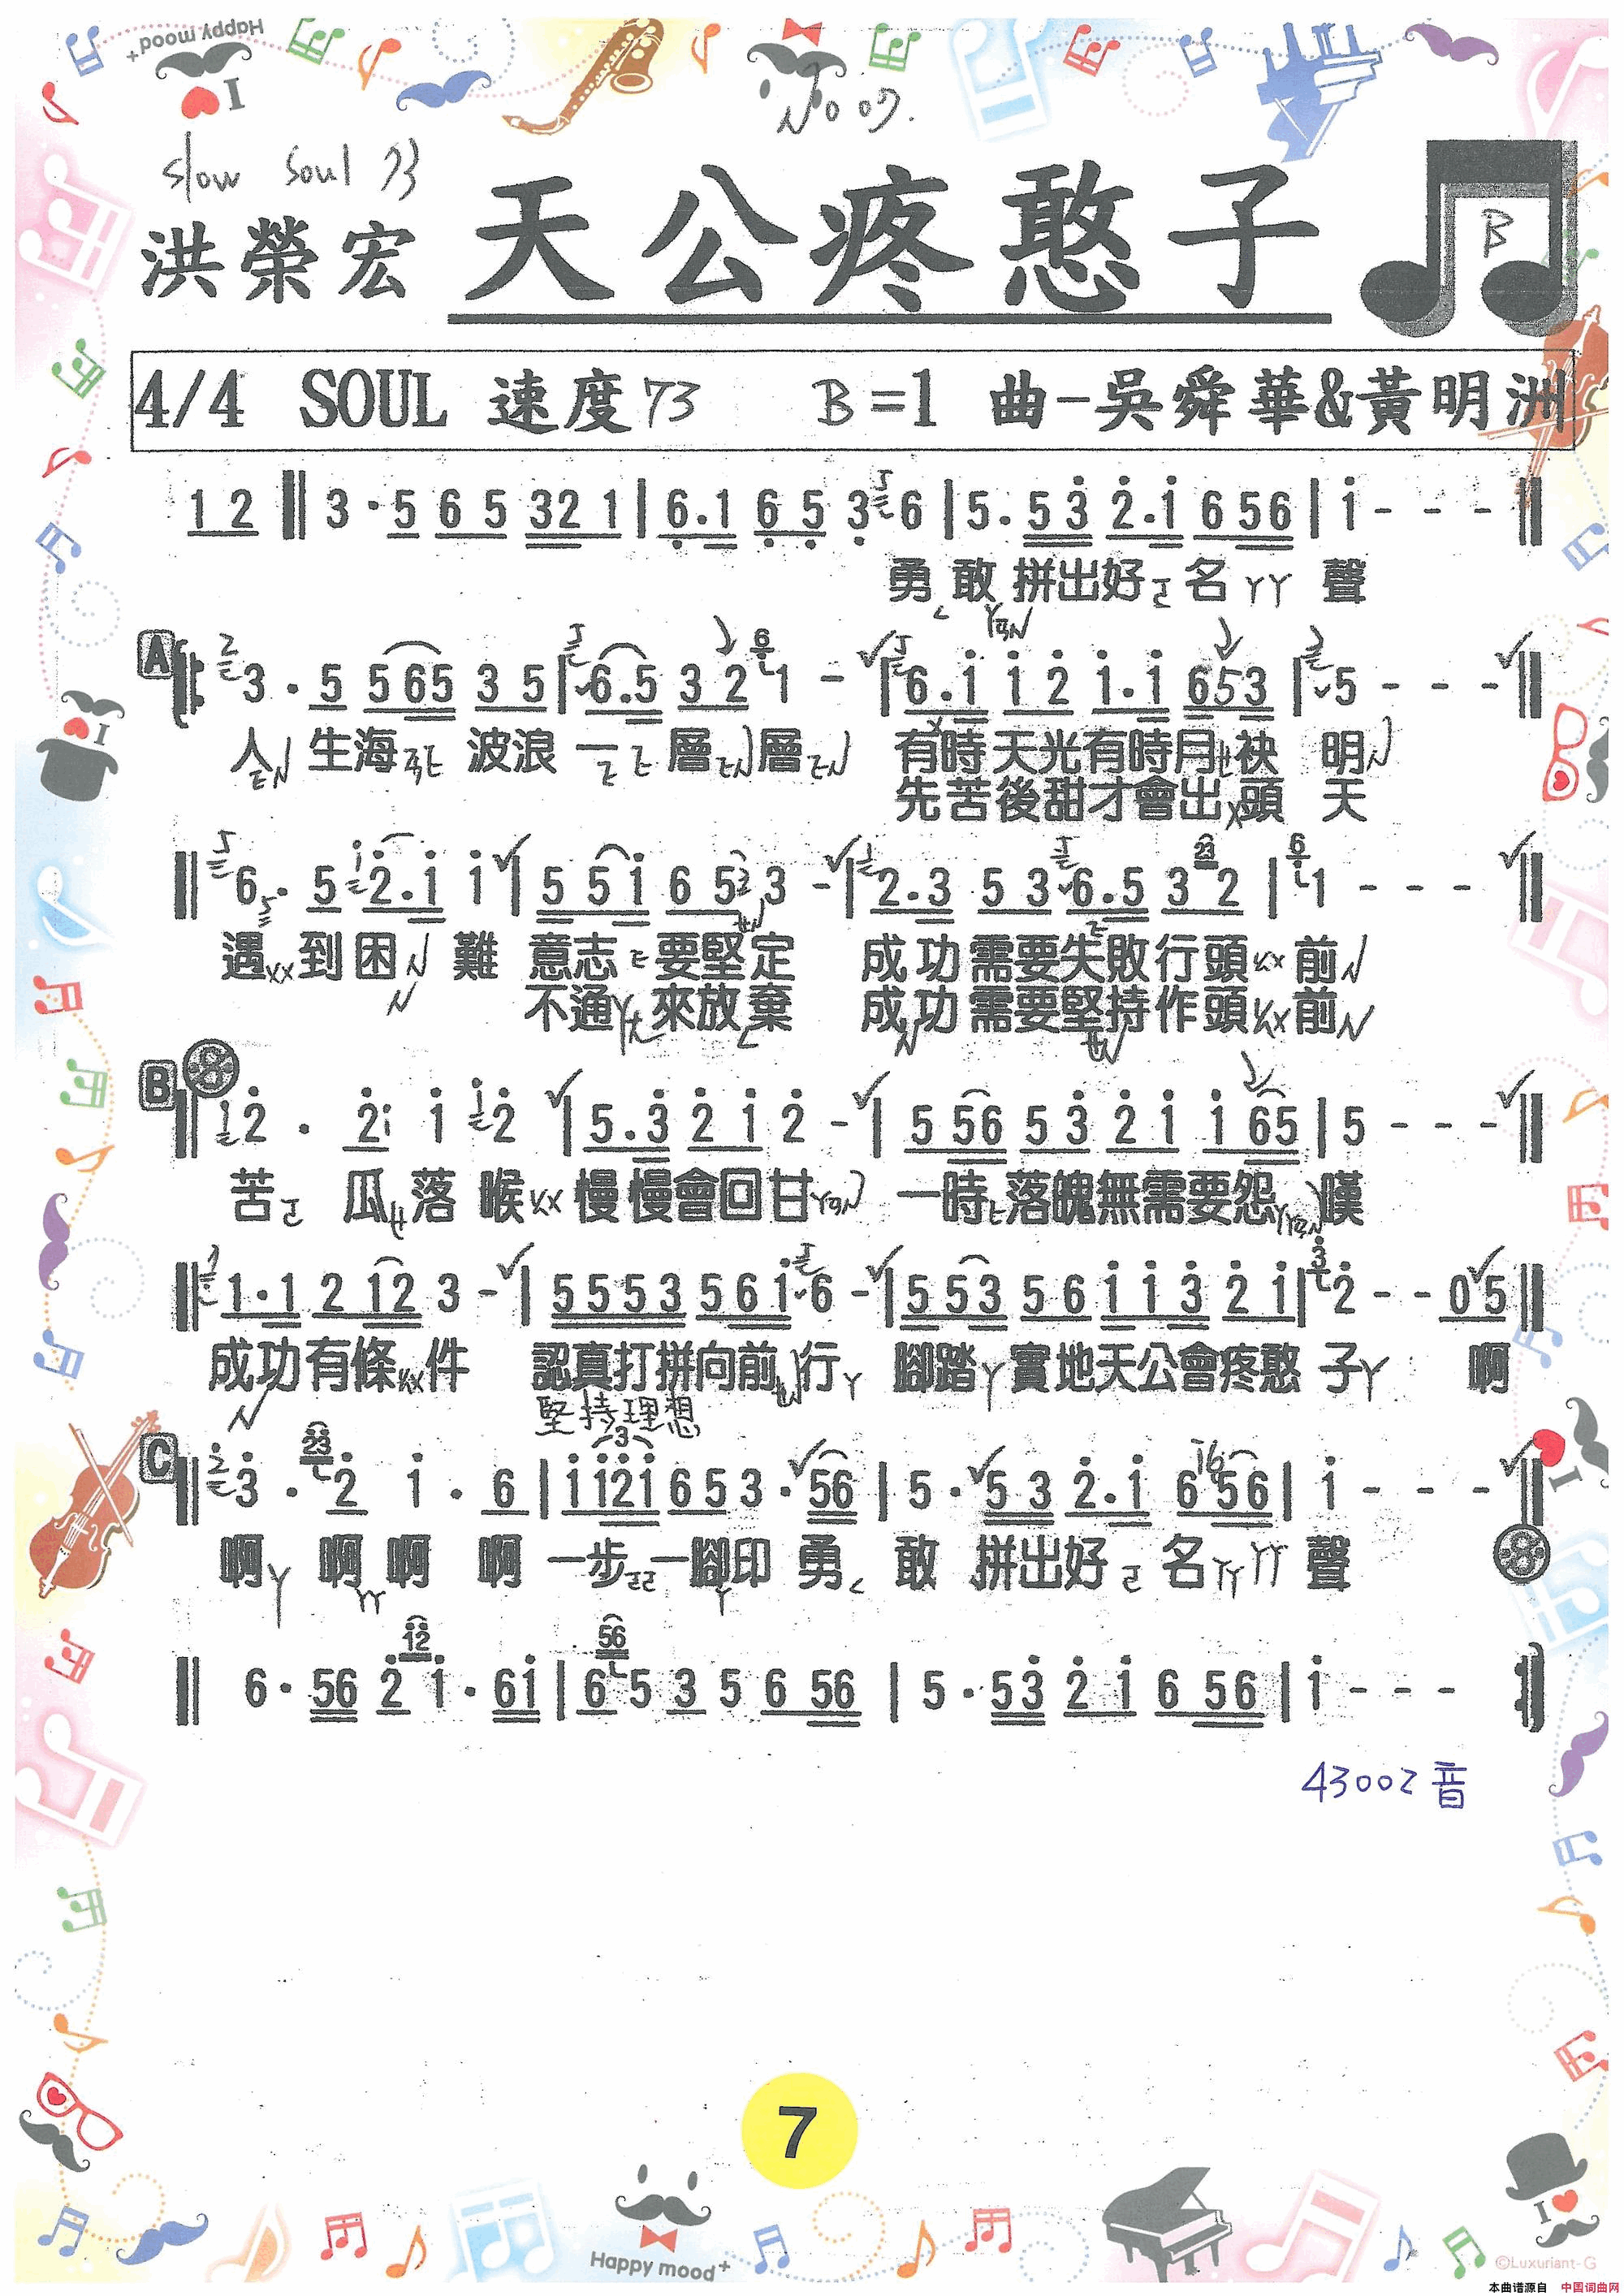 Happy mood+
I
No 07.
slow soul 73
洪榮宏 天公疼憨子 B
4/4 SOUL 速度 73 B=1 曲-吳舜華&黃明洲
1 2 ‖ 3 · 5 6 5 32 1 | 6.1 6 5 3 6 | 5. 5 3 2.i 6 56 | i - - - ‖
勇敢拼出好名聲
A 3 . 5 565 3 5 | 6.5 3 2 1 - | 6.i i 2 i.i 653 | 5 - - - ‖
人生海波浪一層層 有時天光有時月袂明
先苦後甜才會出頭天
‖ 6. 5 2.i i | 5 5i 6 5 3 - | 2.3 5 3 6.5 3 2 | 1 - - - ‖
遇到困難 意志要堅定 成功需要失敗行頭前
不通來放棄 成功需要堅持作頭前
B ‖ 2 . 2i i 2 | 5.3 2 i 2 - | 5 56 5 3 2 i i 65 | 5 - - - ‖
苦瓜落喉慢慢會回甘 一時落魄無需要怨嘆
‖ 1.1 2 12 3 - | 5553 56i 6 - | 5 53 5 6 i i 3 2 i | 2 - - 0 5 ‖
成功有條件 認真打拼向前行 腳踏實地天公會疼憨子 啊
堅持理想
C ‖ 3 . 2 i . 6 | ii2i 653 . 56 | 5 . 5 3 2.i 6 56 | i - - - ‖
啊啊啊啊一步一腳印勇敢拼出好名聲
‖ 6 · 56 2 i . 6i | 6 5 3 5 6 56 | 5 . 53 2 i 6 56 | i - - - ‖
43002 音
7
Happy mood+
I
©Luxuriant-G
本曲谱源自 中国词曲网